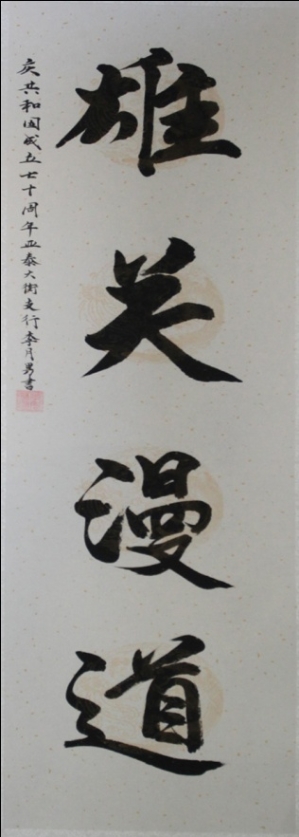 雄关漫道
庆共和国成立七十周年亚泰大街支行李月男書